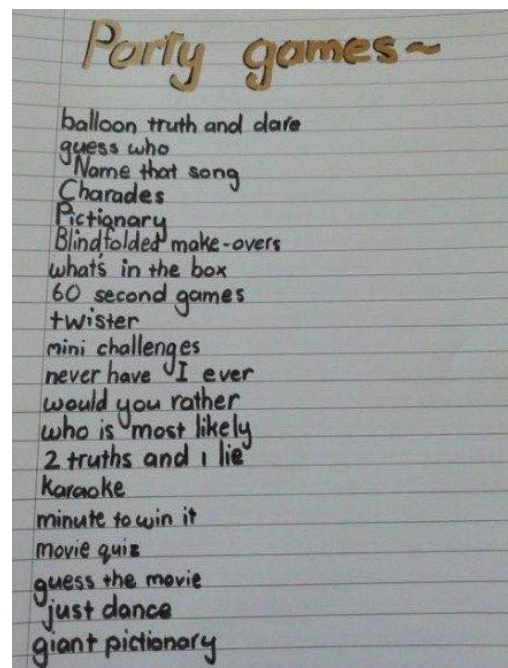 Party games~
balloon truth and dare
guess who
Name that song
Charades
Pictionary
Blindfolded make-overs
what's in the box
60 second games
twister
mini challenges
never have I ever
would you rather
who is most likely
2 truths and 1 lie
karaoke
minute to win it
movie quiz
guess the movie
just dance
giant pictionary